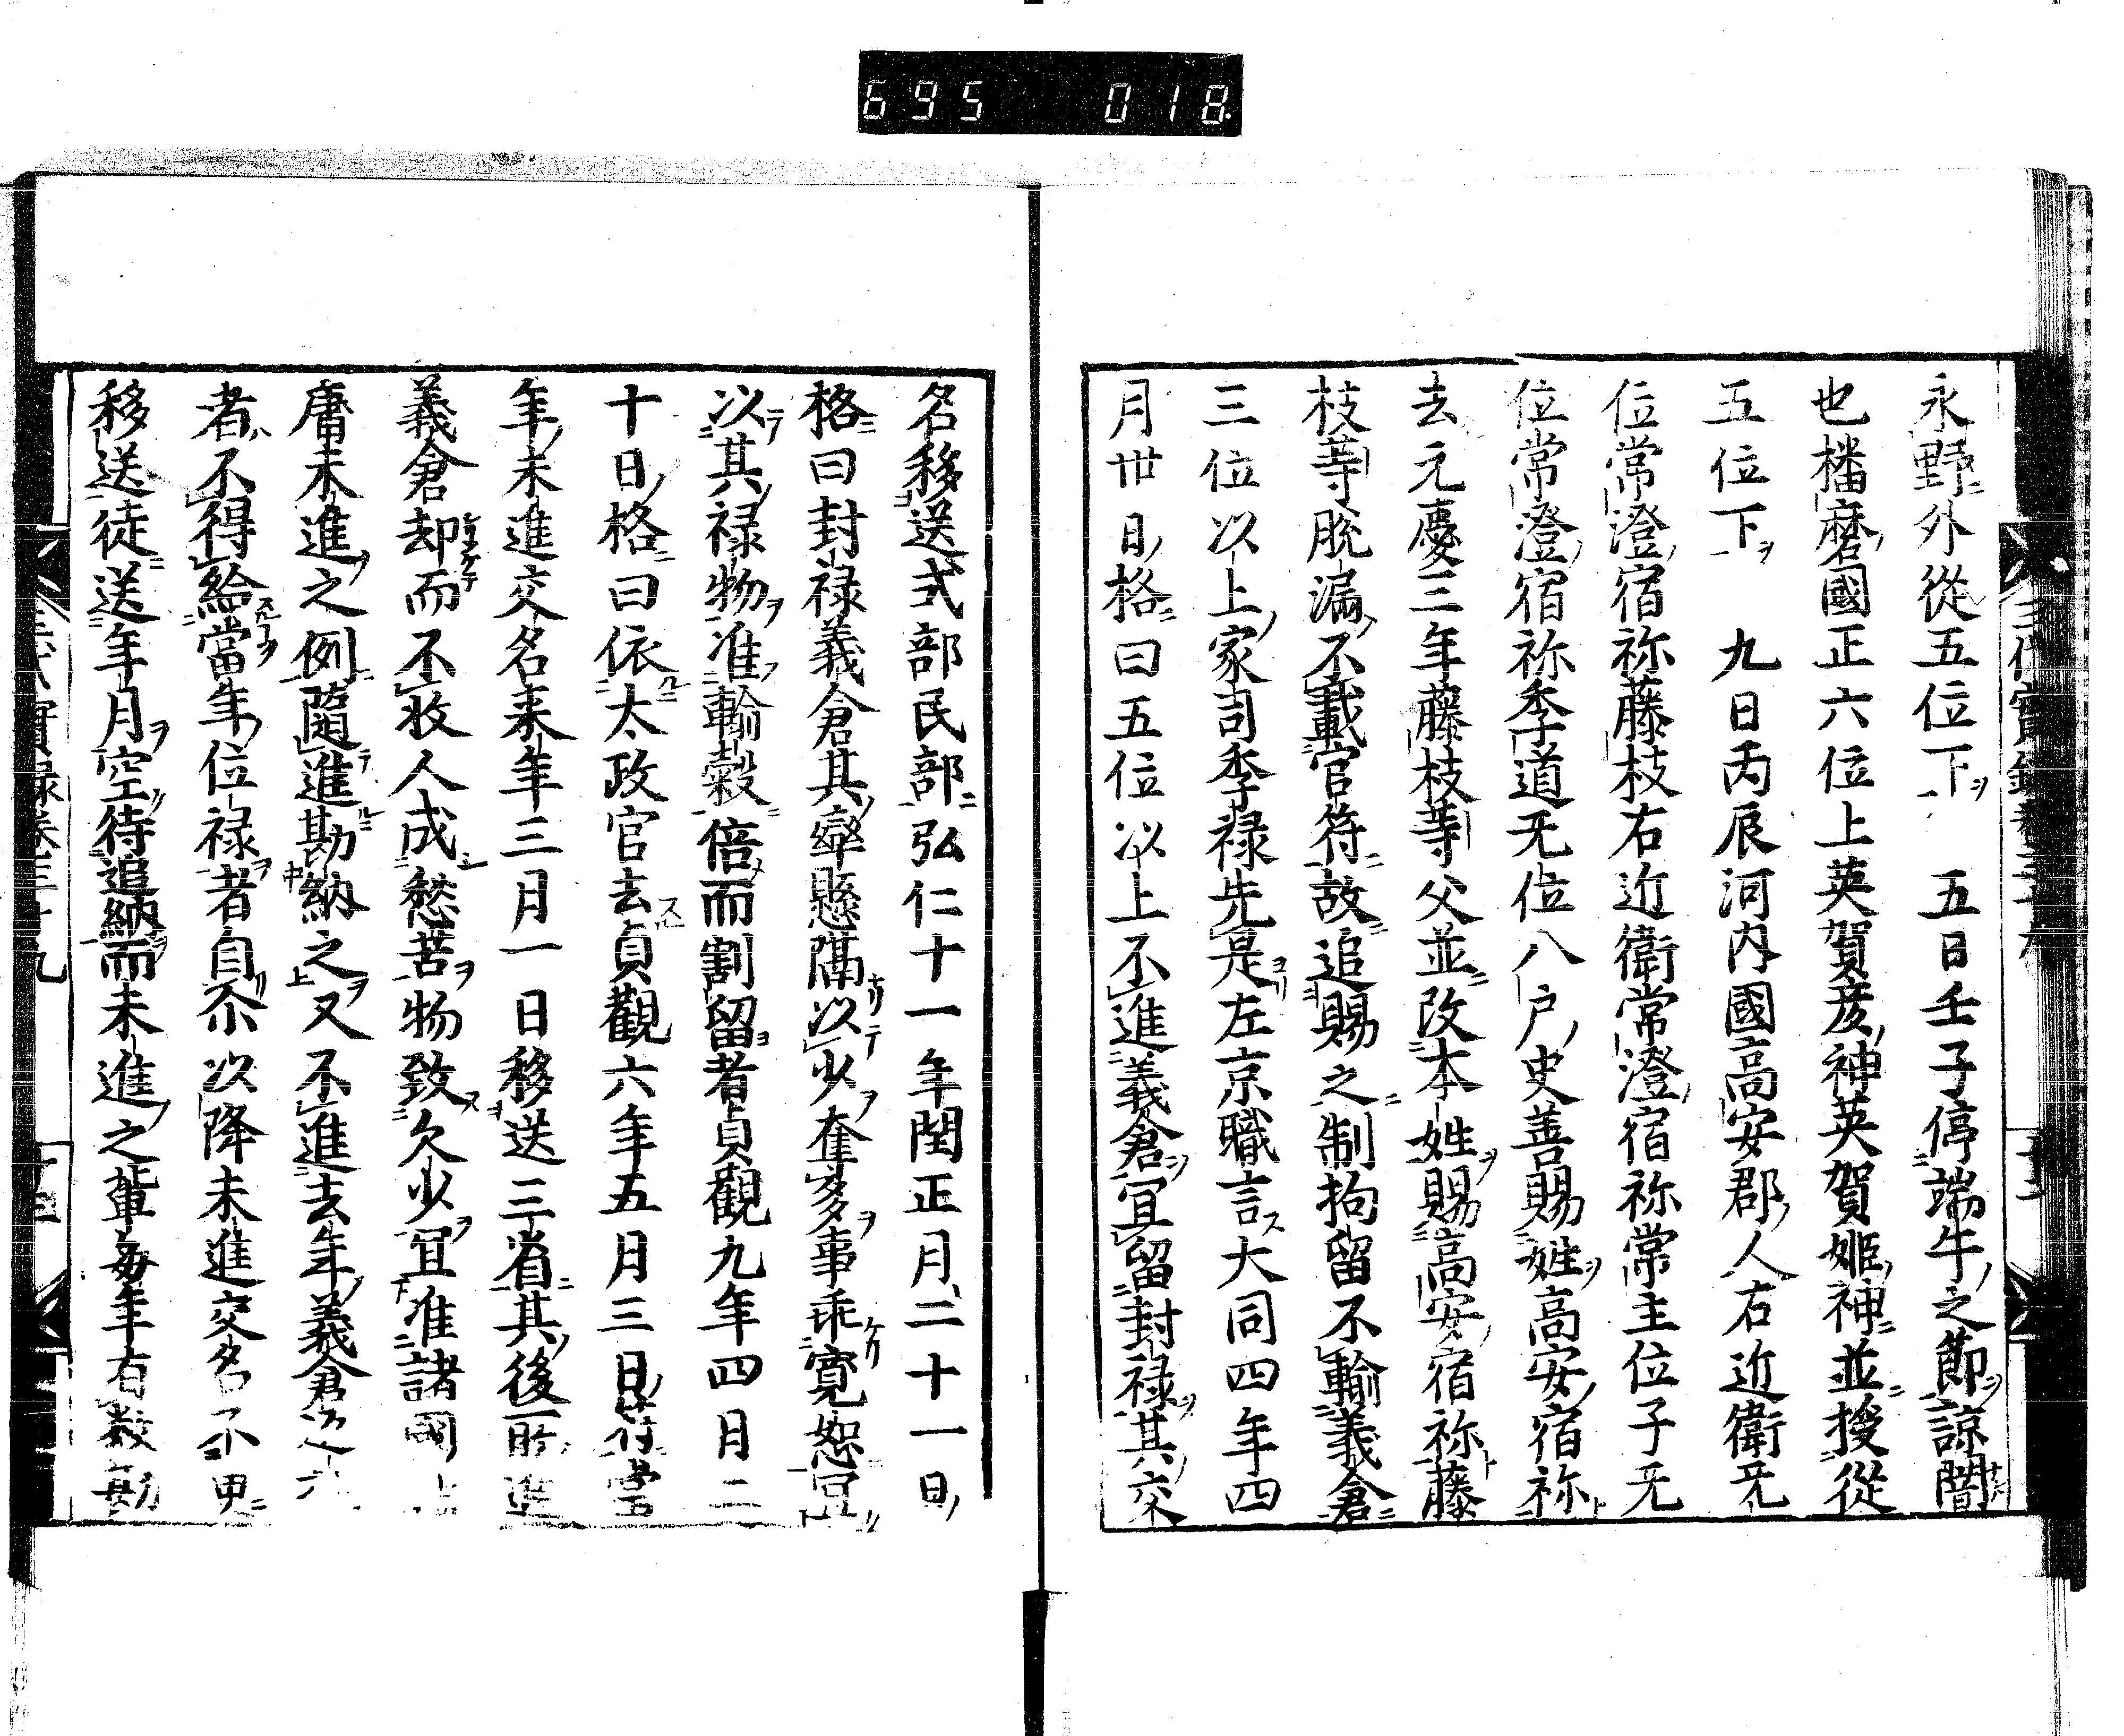 695 018
永野外從五位下 五日壬子停端午之節諒闇
也播磨國正六位上英賀彦神英賀姬神並授從
五位下 九日丙辰河內國高安郡人右近衛无
位常澄宿祢藤枝右近衛常澄宿祢常主位子无
位常澄宿祢季道无位八戶史善賜姓高安宿祢
去元慶三年藤枝等父並改本姓賜高安宿祢藤
枝等脫漏不載官符故追賜之制拘留不輸義倉
三位以上家司季禄先是左京職言大同四年四
月卅日格曰五位以上不進義倉宜留封禄其交
名移送式部民部弘仁十一年閏正月二十一日
格曰封禄義倉其率懸隔以少奪多事乖寬恕宜
以其禄物准輸穀倍而割留者貞觀九年四月二
十日格曰依太政官去貞觀六年五月三日符當
年未進交名来年三月一日移送三省其後所進
義倉却而不收人成愁苦物致欠少宜准諸國
庸未進之例隨進勘納之又不進去年義倉
者不得給當年位禄者自尒以降未進交名不
移送徒送年月空待追納而未進之輩每年有數